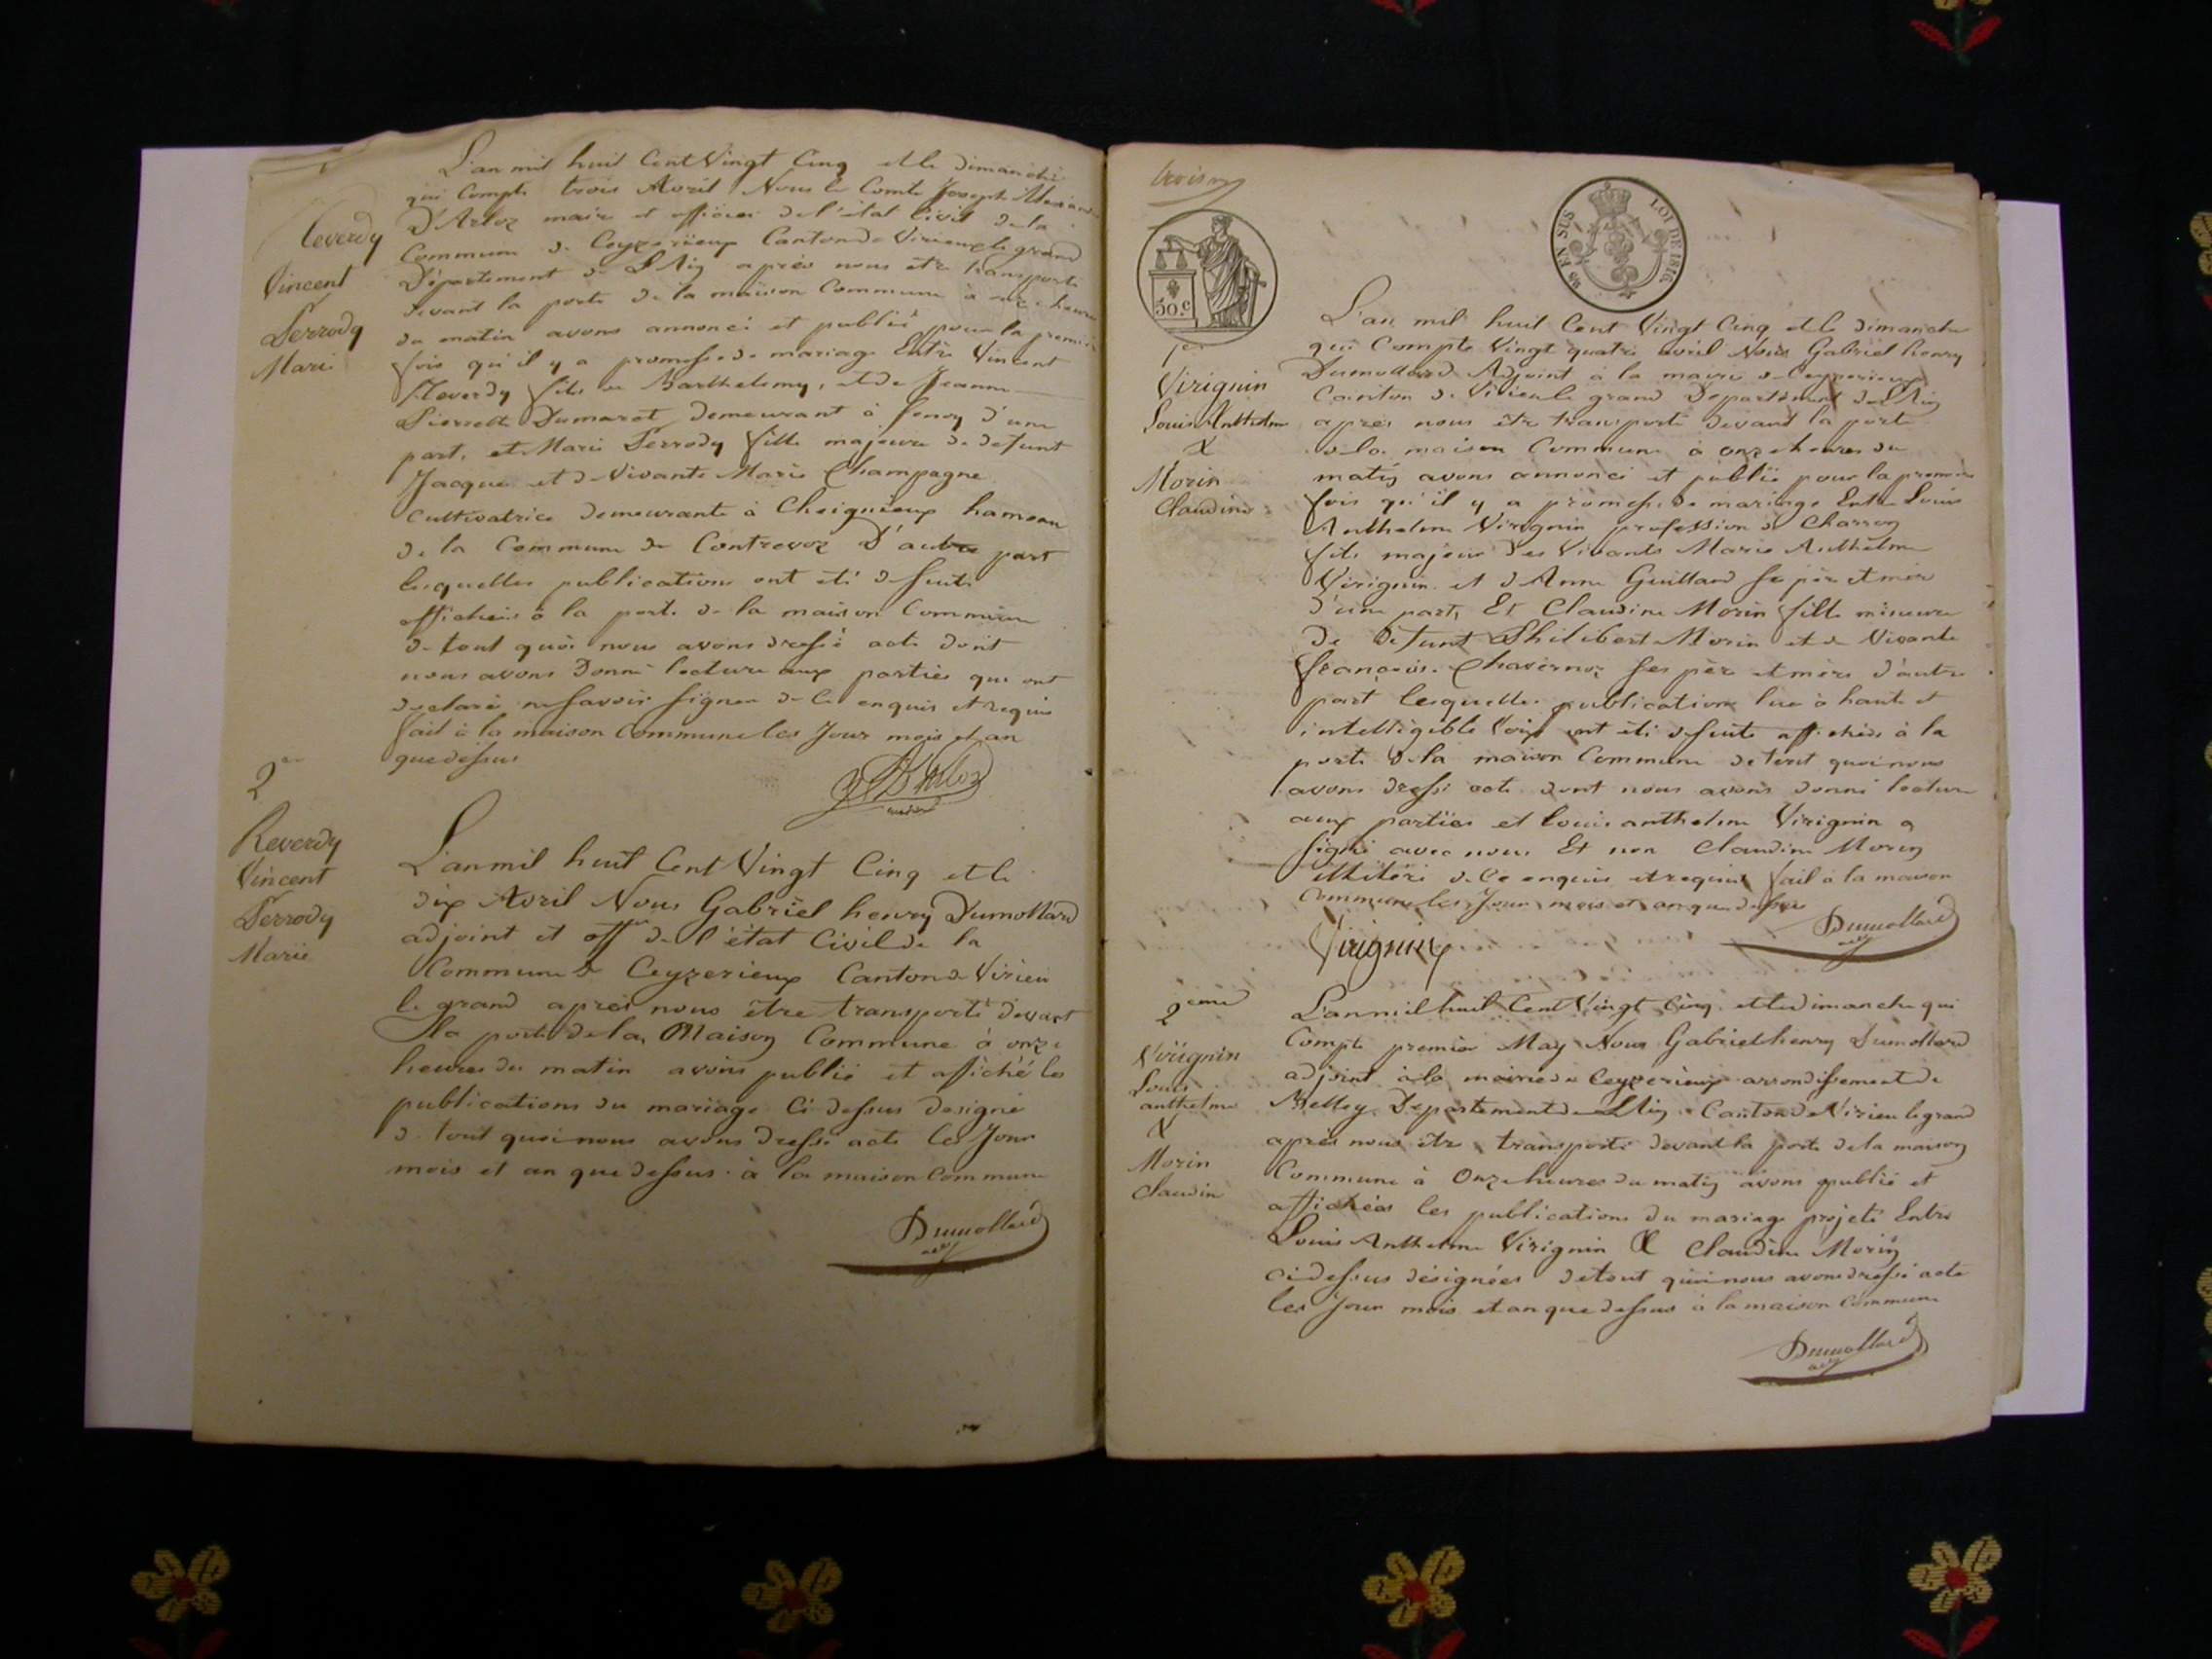 L'an mil huit Cent Vingt Cinq et le Dimanche
qui Compte trois Avril Nous le Comte Joseph
D'Arloz maire et officier de l'état Civil de la
Commune de Ceyzerieux Canton de Virieux le grand
Département de L'Ain après nous être transporté
devant la porte de la maison Commune à onze heures
du matin avons annoncé et publié pour la premier
fois qu'il y a promesse de mariage Entre Vincent
Reverdy fils de Barthelemy, et de Jeanne
Pierrette Dumarest demeurant à d'une
part, et Marie Perrody fille majeure de defunt
Jacque et de Vivante Marie Champagne
Cultivatrice demeurante à Cheignieux hameau
de la Commune de Contrevoz D'autre part
lesquelles publications ont été de suite
affichées à la porte de la maison Commune
de tout quoi nous avons dressé acte dont
nous avons Donné lecture aux parties qui ont
declaré ne savoir signer de ce enquis et requis
fait à la maison Commune les Jour mois et an
que dessus
Reverdy
Vincent
Perrody
Marie
D'Arloz
2e
Reverdy
Vincent
Perrody
Marie
L'an mil huit Cent Vingt Cinq et le
dix Avril Nous Gabriel henry Dumollard
adjoint et offer de l'état Civil de la
Commune de Ceyzerieux Canton de Virieu
le grand après nous être transporté devant
la porte de la Maison Commune à onze
heures du matin avons publié et affiché les
publications du mariage Ci dessus designé
de tout quoi nous avons dressé acte les Jour
mois et an que dessus à la maison Commune
Dumollard
adj
trois
50.c
EN SUS
LOI DE 1816.
1er
Virignin
Louis Anthelme
&
Morin
Claudine
L'an mil huit Cent Vingt Cinq et le dimanche
qui Compte Vingt quatre avril Nous Gabriel henry
Dumollard Adjoint à la mairie de Ceyzerieux
Canton de Virieu le grand Departement de L'Ain
après nous être transporté devant la porte
de la maison Commune à onze heures du
matin avons annoncé et publié pour la premiere
fois qu'il y a promesse de mariage Entre Louis
Anthelme Virignin profession de Charron
fils majeur des Vivants Marie Anthelme
Virignin et d'Anne Guilland se père et mère
d'une part, Et Claudine Morin fille mineure
de defunt Philibert Morin et de Vivante
françoise Chavernoz ses père et mère d'autre
part lesquelles publications lue à haute et
intelligible Voix ont été de suite affichées à la
porte de la maison Commune de tout quoi nous
avons dressé acte dont nous avons donné lecture
aux parties et Louis anthelme Virignin a
signé avec nous Et non Claudine Morin
illitéré de Ce enquis et requis fait à la maison
Commune les Jour mois et an que dessus
Virignin
Dumollard
adj
2eme
Virignin
Louis
anthelme
&
Morin
Claudine
L'an mil huit Cent Vingt Cinq et le dimanche qui
Compte premier May Nous Gabriel henry Dumollard
adjoint à la mairie de Ceyzerieux arrondissement de
Belley Departement de L'Ain Canton de Virieu le grand
après nous être transporté devant la porte de la maison
Commune à Onze heures du matin avons publié et
affichées les publications du mariage projeté Entre
Louis Anthelme Virignin & Claudine Morin
ci dessus désignées de tout quoi nous avons dressé acte
les Jour mois et an que dessus à la maison Commune
Dumollard
adj